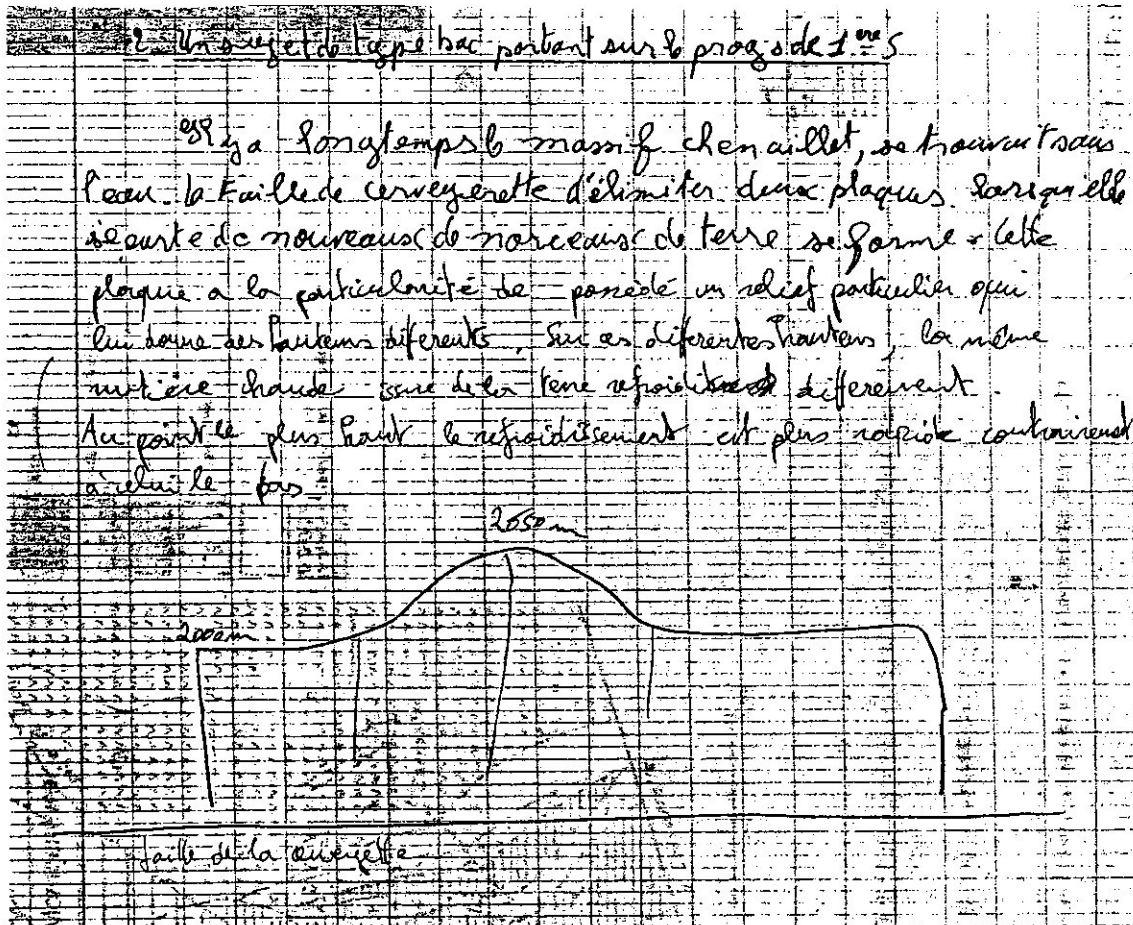 2. Un sujet de type bac portant sur le progs de 1ère S
Il y a longtemps le massif chenaillet, se trouvait sous
l'eau. la Faille de cerveyrette d'élimiter deux plaques. Lorsqu'elle
s'écarte de nouveaux de morceaux de terre se forme. Cette
plaque a la particularité de possédé un relief particulier qui
lui donne des hauteurs diférents. Sur ces diférentes hauteurs, la même
matière chaude issue de la terre refroidit differement.
Au point le plus haut le refroidissement est plus rapide contrairement
à celui le bas
2650m
2000m
faille de la